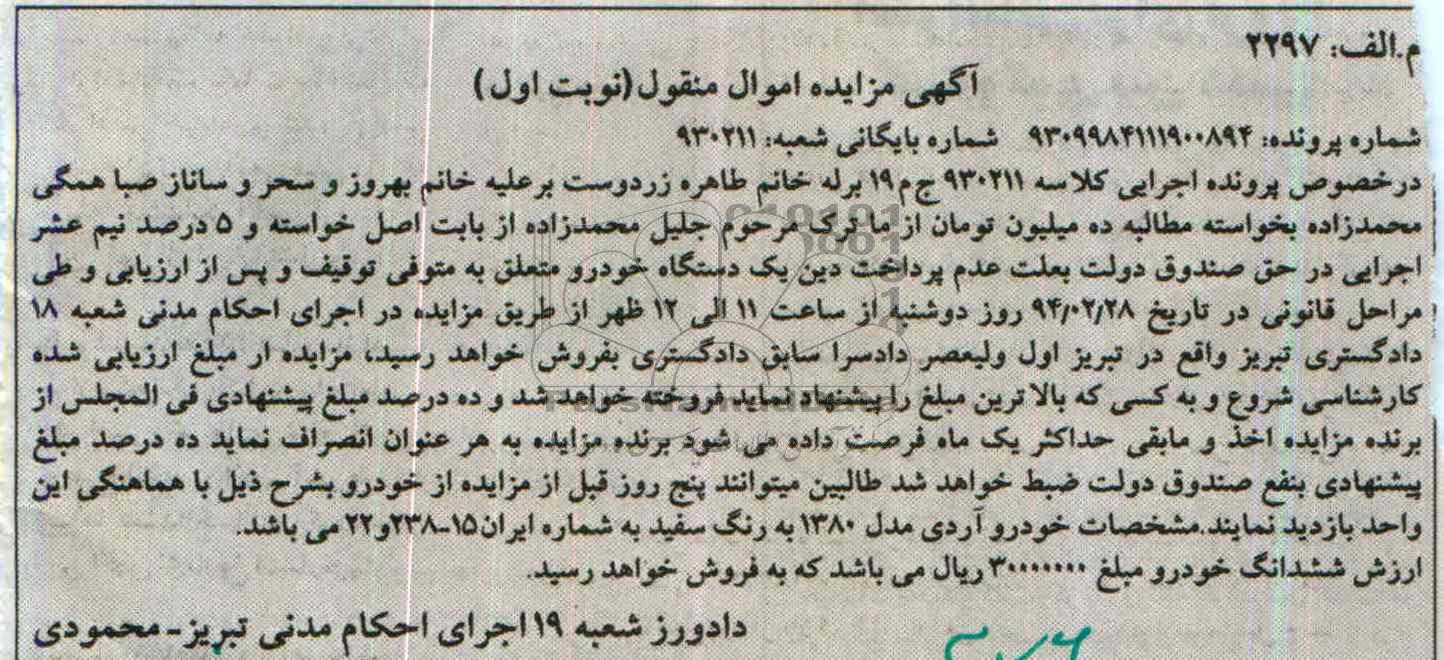 م.الف: ۲۲۹۷
آگهی مزایده اموال منقول(نوبت اول)
شماره پرونده: ۹۳۰۹۹۸۴۱۱۱۹۰۰۸۹۴ شماره بایگانی شعبه: ۹۳۰۲۱۱
درخصوص پرونده اجرایی کلاسه ۹۳۰۲۱۱ ج م ۱۹ برله خانم طاهره زردوست برعلیه خانم بهروز و سحر و ساناز صبا همگی
محمدزاده بخواسته مطالبه ده میلیون تومان از ما ترک مرحوم جلیل محمدزاده از بابت اصل خواسته و ۵ درصد نیم عشر
اجرایی در حق صندوق دولت بعلت عدم پرداخت دین یک دستگاه خودرو متعلق به متوفی توقیف و پس از ارزیابی و طی
مراحل قانونی در تاریخ ۹۴/۰۲/۲۸ روز دوشنبه از ساعت ۱۱ الی ۱۲ ظهر از طریق مزایده در اجرای احکام مدنی شعبه ۱۸
دادگستری تبریز واقع در تبریز اول ولیعصر دادسرا سابق دادگستری بفروش خواهد رسید، مزایده ار مبلغ ارزیابی شده
کارشناسی شروع و به کسی که بالا ترین مبلغ را پیشنهاد نماید فروخته خواهد شد و ده درصد مبلغ پیشنهادی فی المجلس از
برنده مزایده اخذ و مابقی حداکثر یک ماه فرصت داده می شود برنده مزایده به هر عنوان انصراف نماید ده درصد مبلغ
پیشنهادی بنفع صندوق دولت ضبط خواهد شد طالبین میتوانند پنج روز قبل از مزایده از خودرو بشرح ذیل با هماهنگی این
واحد بازدید نمایند.مشخصات خودرو آردی مدل ۱۳۸۰ به رنگ سفید به شماره ایران۱۵-۲۳۸و۲۲ می باشد.
ارزش ششدانگ خودرو مبلغ ۳۰۰۰۰۰۰۰ ریال می باشد که به فروش خواهد رسید.
دادورز شعبه ۱۹ اجرای احکام مدنی تبریز-محمودی